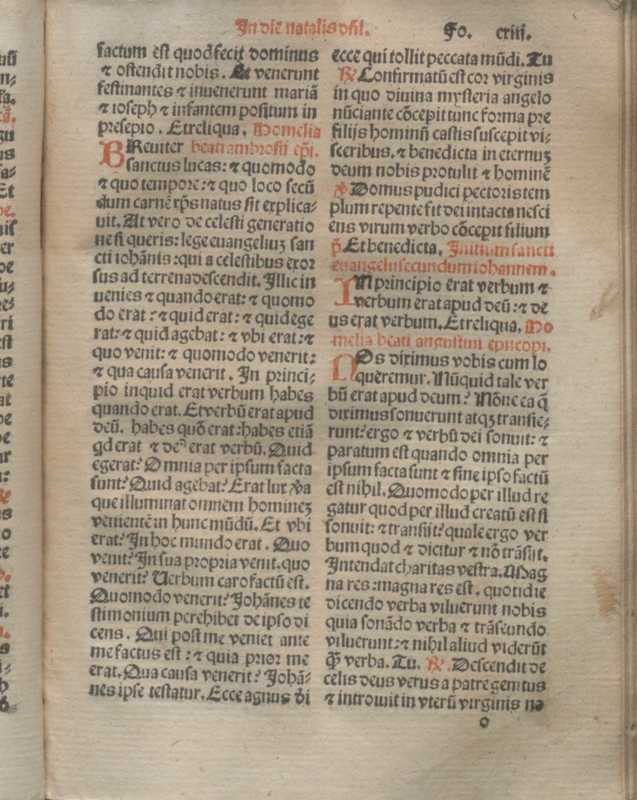 In die natalis dñi.
Fo. cxiij.
factum est quod fecit dominus
⁊ ostendit nobis. Et venerunt
festinantes ⁊ invenerunt mariã
⁊ ioseph ⁊ infantem positum in
presepio. Et reliqua. Homelia
BReuiter beati ambrosii ep̃i.
sanctus lucas: ⁊ quomodo
⁊ quo tempore: ⁊ quo loco secũ
dum carnẽ xp̃s natus sit explica⸗
uit. At vero de celesti generatio
ne si queris: lege euangeliuȝ san
cti iohãnis: qui a celestibus exor
sus ad terrena descendit. Illic in
uenies ⁊ quando erat: ⁊ quomo
do erat: ⁊ quid erat: ⁊ quid ege
rat: ⁊ quid agebat: ⁊ vbi erat: ⁊
quo venit: ⁊ quomodo venerit:
⁊ qua causa venerit. In princi⸗
pio inquid erat verbum habes
quando erat. Et verbũ erat apud
deũ. habes quõ erat: habes etiã
qd erat ⁊ deꝰ erat verbũ. Quid
egerat? Omnia per ipsum facta
sunt? Quid agebat? Erat lux ṽa
que illuminat omnem hominez
venientẽ in hunc mũdũ. Et vbi
erat? In hoc mundo erat. Quo
venit? In sua propria venit. quo
venerit? Verbum caro factũ est.
Quomodo venerit? Johãnes te
stimonium perhibet de ipso di
cens. Qui post me veniet ante
me factus est: ⁊ quia prior me
erat. Qua causa venerit? Johã⸗
nes ipse testatur. Ecce agnus d̃i
ecce qui tollit peccata mũdi. Tu
℟ Confirmatũ est cor virginis
in quo diuina mysteria angelo
nũciante cõcepit tunc forma pre
filijs hominũ castis suscepit vi⸗
sceribus. ⁊ benedicta in eternuȝ
deum nobis protulit ⁊ hominẽ
℣ Domus pudici pectoris tem
plum repente fit dei intacta nesci
ens virum verbo cõcepit filium
p̃. Et benedicta. Initium sancti
euangelii secundum iohannem.
IN principio erat verbum ⁊
verbum erat apud deũ: ⁊ de
us erat verbum. Et reliqua. Ho
melia beati augustini episcopi.
NOs diximus vobis cum lo
queremur. Nũquid tale ver
bũ erat apud deum? Nõne ea q̃
diximus sonuerunt atqȝ transie⸗
runt? ergo ⁊ verbũ dei sonuit: ⁊
paratum est quando omnia per
ipsum facta sunt ⁊ sine ipso factũ
est nihil. Quomodo per illud re
gatur quod per illud creatũ est si
sonuit: ⁊ transijt? quale ergo ver
bum quod ⁊ dicitur ⁊ nõ trãsijt.
Intendat charitas vestra. Mag
na res: magna res est. quotidie
dicendo verba viluerunt nobis
quia sonãdo verba ⁊ trãseundo
viluerunt: ⁊ nihil aliud viderũt
q̃ȝ verba. Tu. ℟. Descendit de
celis deus verus a patre genitus
⁊ introiuit in vterũ virginis no
o